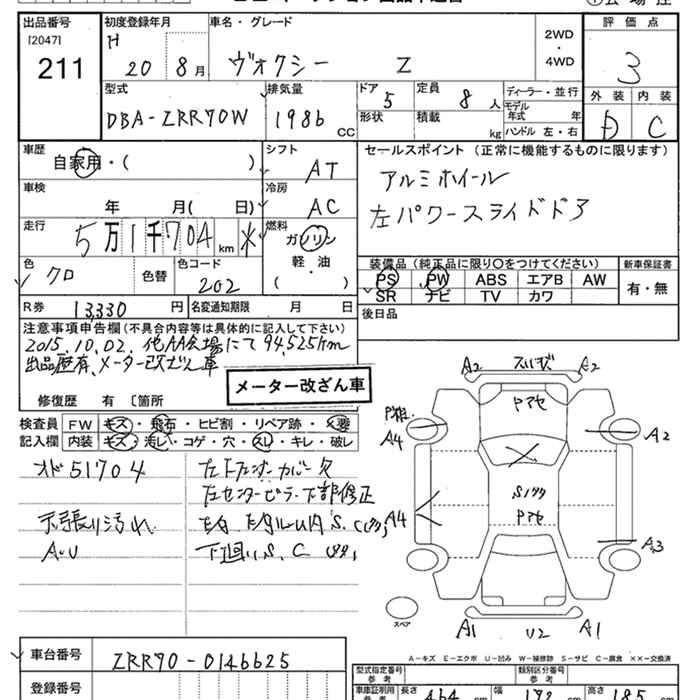 出品番号 初度登録年月 車名・グレード 2WD・4WD 評価点
[2047] H
211 20 8月 ヴォクシー Z 3
外装 内装
D C
型式 排気量 ドア 定員 ディーラー・並行
DBA-ZRR70W 1986 CC 5 8人 モデル年式 年
形状 積載 kg ハンドル 左・右
車歴 シフト セールスポイント(正常に機能するものに限ります)
自家用・( ) AT アルミホイール
車検 冷房 左パワースライドドア
年 月( 日) AC
走行 燃料
5万1千704km ※ ガソリン
軽・油
( )
色 色替 色コード 装備品(純正品に限り○をつけてください) 新車保証書
クロ 202 PS PW ABS エアB AW 有・無
SR ナビ TV カワ
R券 13,330円 名変通知期限 月 日 後日品
注意事項申告欄(不具合内容等は具体的に記入して下さい)
2015.10.02.他AA会場にて94,525km
出品歴有、メーター改ざん車
メーター改ざん車
修復歴 有 〔箇所
検査員 FW キズ・飛石・ヒビ割・リペア跡・×要
記入欄 内装 キズ・汚し・コゲ・穴・スレ・キレ・破レ
オド51704 左下フェンダーカバー欠
左センターピラー下部修正
天張り汚れ
A・U 下廻りS、C
A2 A2
Pアセ
A4 A2
A4 Pアセ
A3
スペア
A1 U2 A1
A-キズ E-エクボ U-凹み W-補修跡 S-サビ C-腐食 ××-交換済
車台番号 ZRR70-0146625
登録番号
型式指定番号 参考 類別区分番号 参考
車庫証明用 参考 長さ 464 cm 幅 172 cm 高さ 185 cm